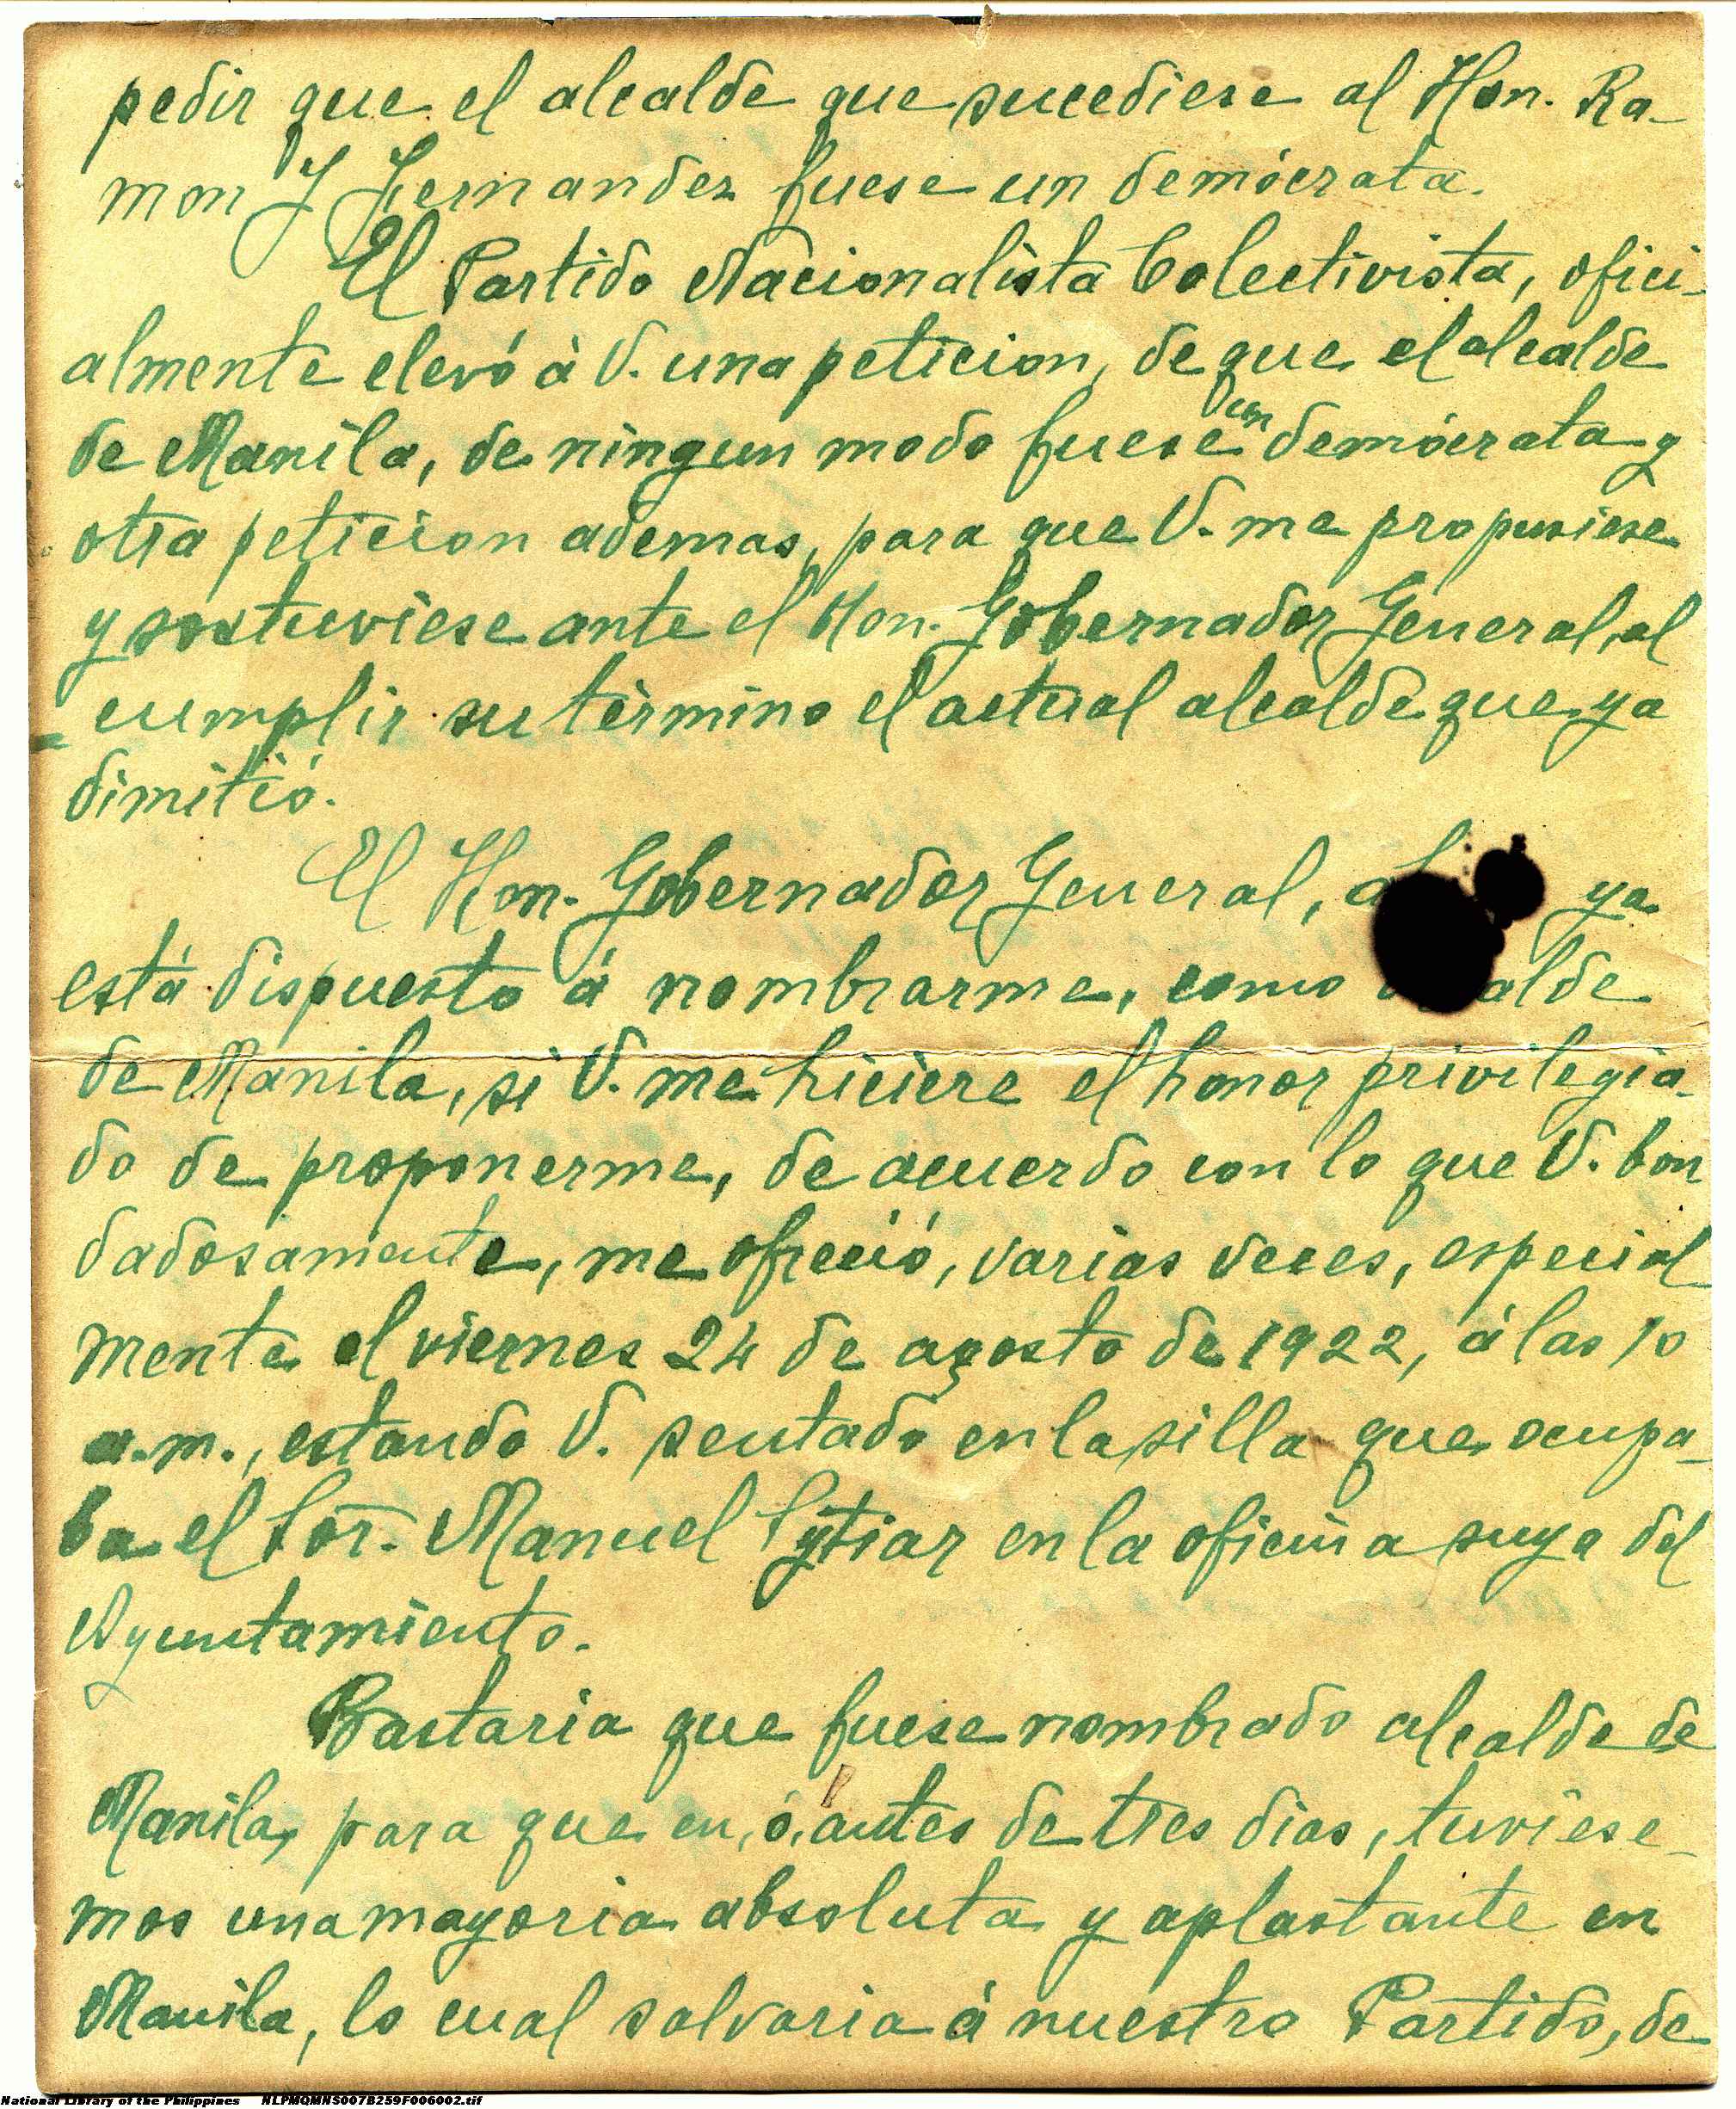 pedir que el alcalde que sucediese al Hon. Ra-
mon J Fernandez fuese un demócrata.
El Partido Nacionalista Colectivista, ofici-
almente elevó à V. una peticion, de que el alcalde
de Manila, de ningun modo fuese un demócrata y
otra peticion ademas, para que V. me propusiese
y sostuviese ante el Hon. Gobernador General, al
cumplir su tèrmino el actual alcalde que ya
dimitió.
El Hon. Gobernador General, ya
está dispuesto á nombrarme, como alcalde
de Manila, si V. me hiciere el honor privilegia-
do de proponerme, de acuerdo con lo que V. bon
dadosamente, me ofreció, varias veces, especial
mente el viernes 24 de agosto de 1922, á las 10
a.m., estando V. sentado en la silla que ocupa-
ba el Manuel en la oficina suya del
Ayuntamiento.
Bastaria que fuese nombrado alcalde de
Manila, para que en, ó, antes de tres dias, tuviese-
mos una mayoria absoluta y aplastante en
Manila, lo cual salvaria á nuestro Partido, de
National Library of the Philippines NLPMQMNS007B259F006002.tif